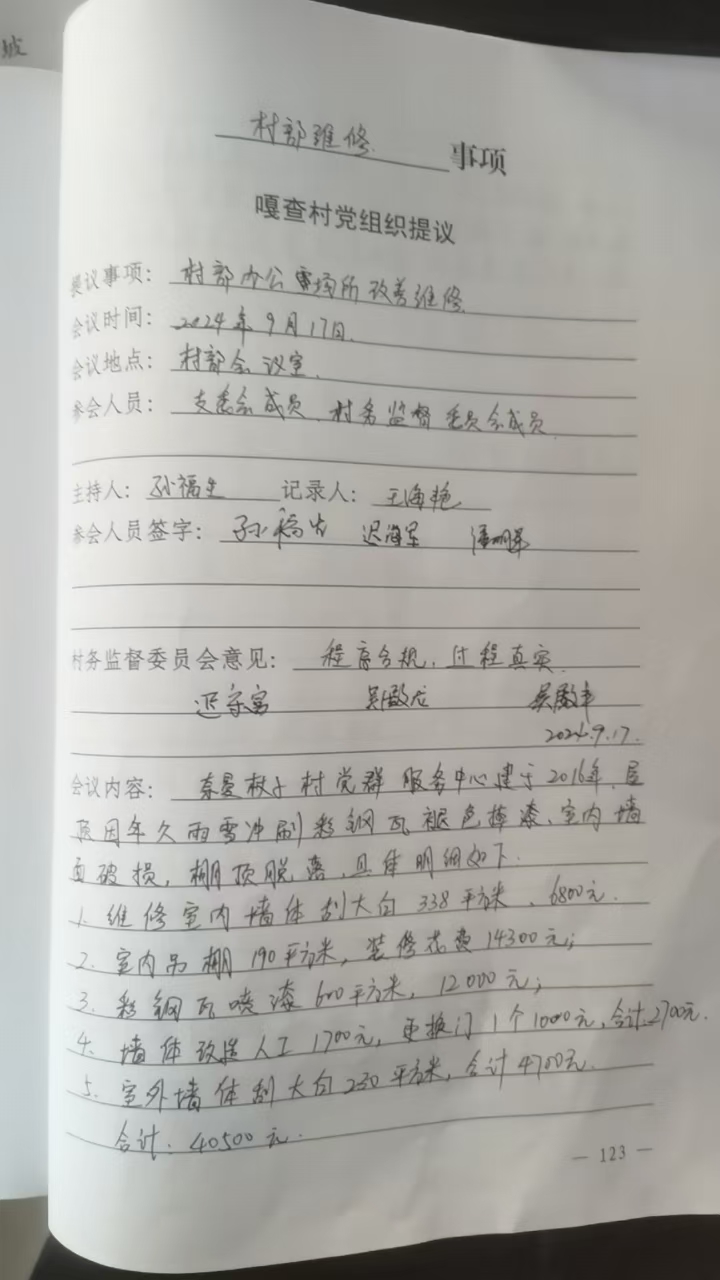 城
村部维修 事项
嘎查村党组织提议
提议事项：村部办公场所改善维修
会议时间：2024年9月17日
会议地点：村部会议室
参会人员：支委会成员、村务监督委员会成员
主持人：孙福生 记录人：王海艳
参会人员签字：孙福生 迟海军 潘明军
村务监督委员会意见：程序合规，过程真实
迟宗富 吴殿龙 吴殿丰
2024.9.17.
会议内容：奈曼杖子村党群服务中心建于2016年，屋
顶因年久雨雪冲刷彩钢瓦褪色掉漆、室内墙
面破损，棚顶脱离，具体明细如下.
1. 维修室内墙体刮大白338平方米、6800元.
2. 室内吊棚190平方米，装修花费14300元；
3. 彩钢瓦喷漆600平方米，12000元；
4. 墙体改造人工1700元，更换门1个1000元，合计2700元.
5. 室外墙体刮大白230平方米，合计4700元.
合计：40500元.
— 123 —